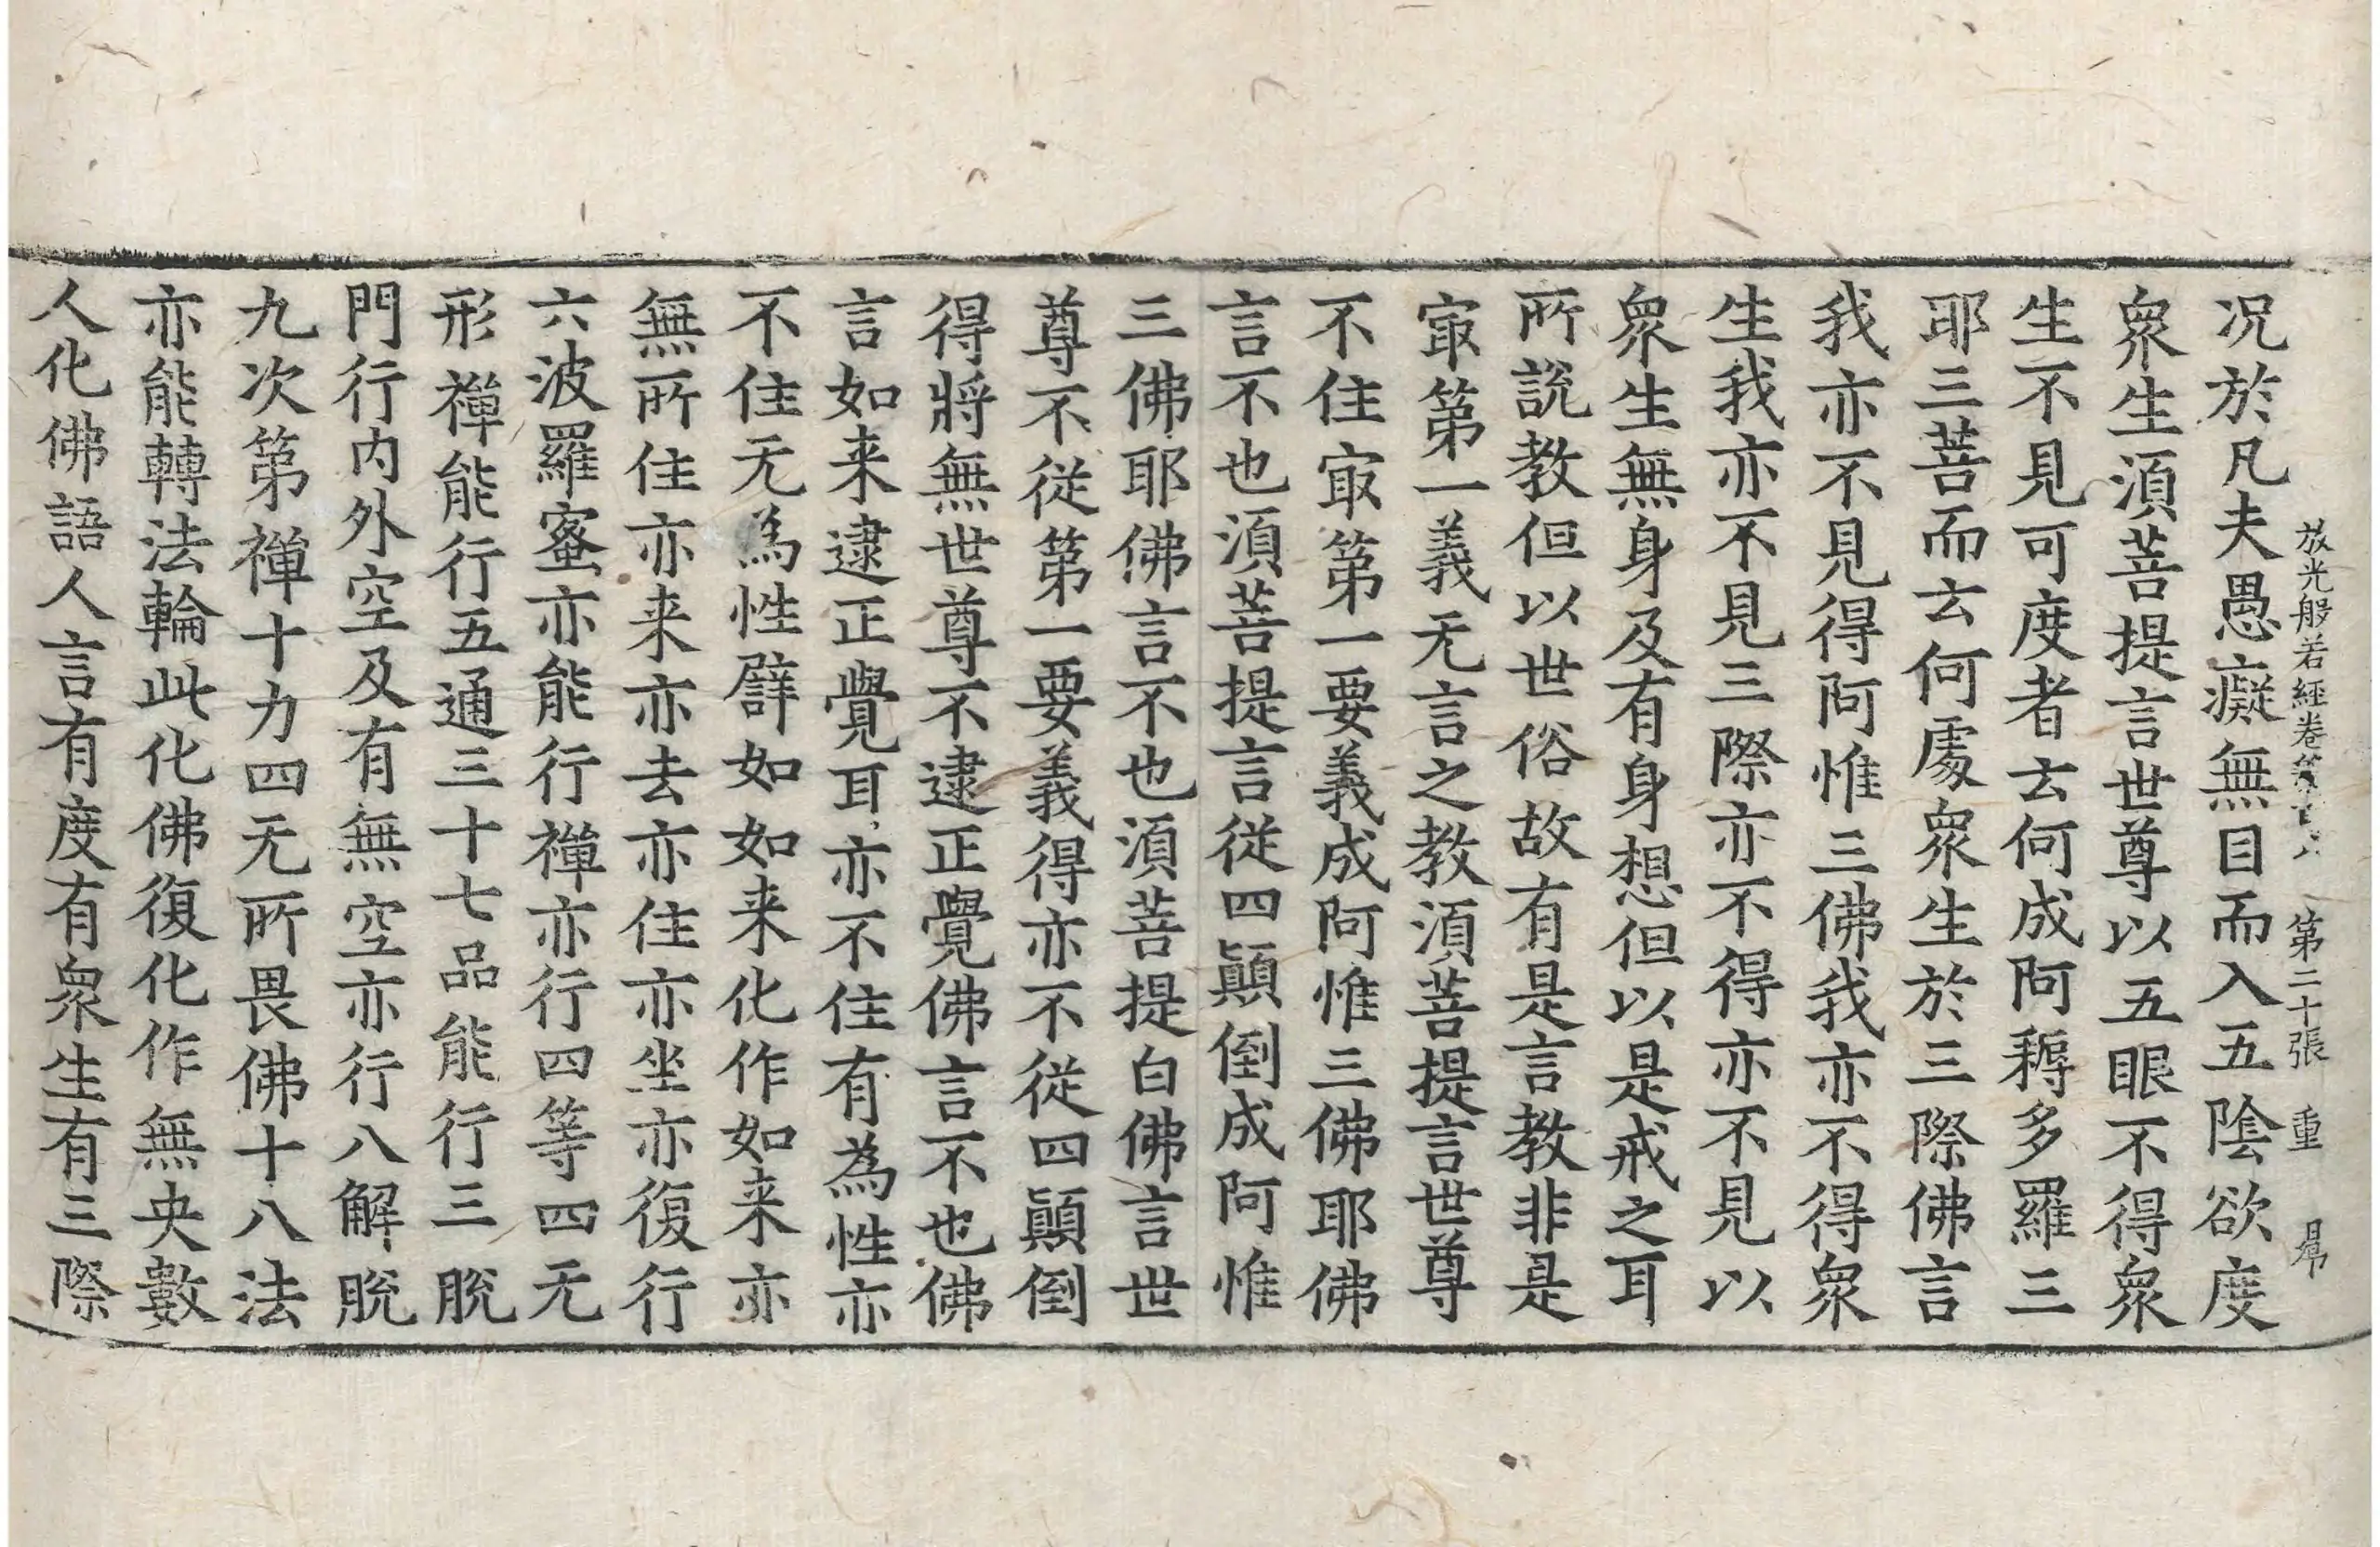 放光般若經卷第十八 第二十張 重
况於凡夫愚癡無目而入五陰欲度
衆生須菩提言世尊以五眼不得衆
生不見可度者云何成阿耨多羅三
耶三菩而云何處衆生於三際佛言
我亦不見得阿惟三佛我亦不得衆
生我亦不見三際亦不得亦不見以
衆生無身及有身想但以是戒之耳
所說教但以世俗故有是言教非是
㝡第一義无言之教須菩提言世尊
不住㝡第一要義成阿惟三佛耶佛
言不也須菩提言從四顛倒成阿惟
三佛耶佛言不也須菩提白佛言世
尊不從第一要義得亦不從四顛倒
得將無世尊不逮正覺佛言不也佛
言如来逮正覺耳亦不住有為性亦
不住无為性譬如如来化作如来亦
無所住亦来亦去亦住亦坐亦復行
六波羅蜜亦能行禪亦行四等四无
形禪能行五通三十七品能行三脫
門行内外空及有無空亦行八解脫
九次第禪十力四无所畏佛十八法
亦能轉法輪此化佛復化作無央數
人化佛語人言有度有衆生有三際